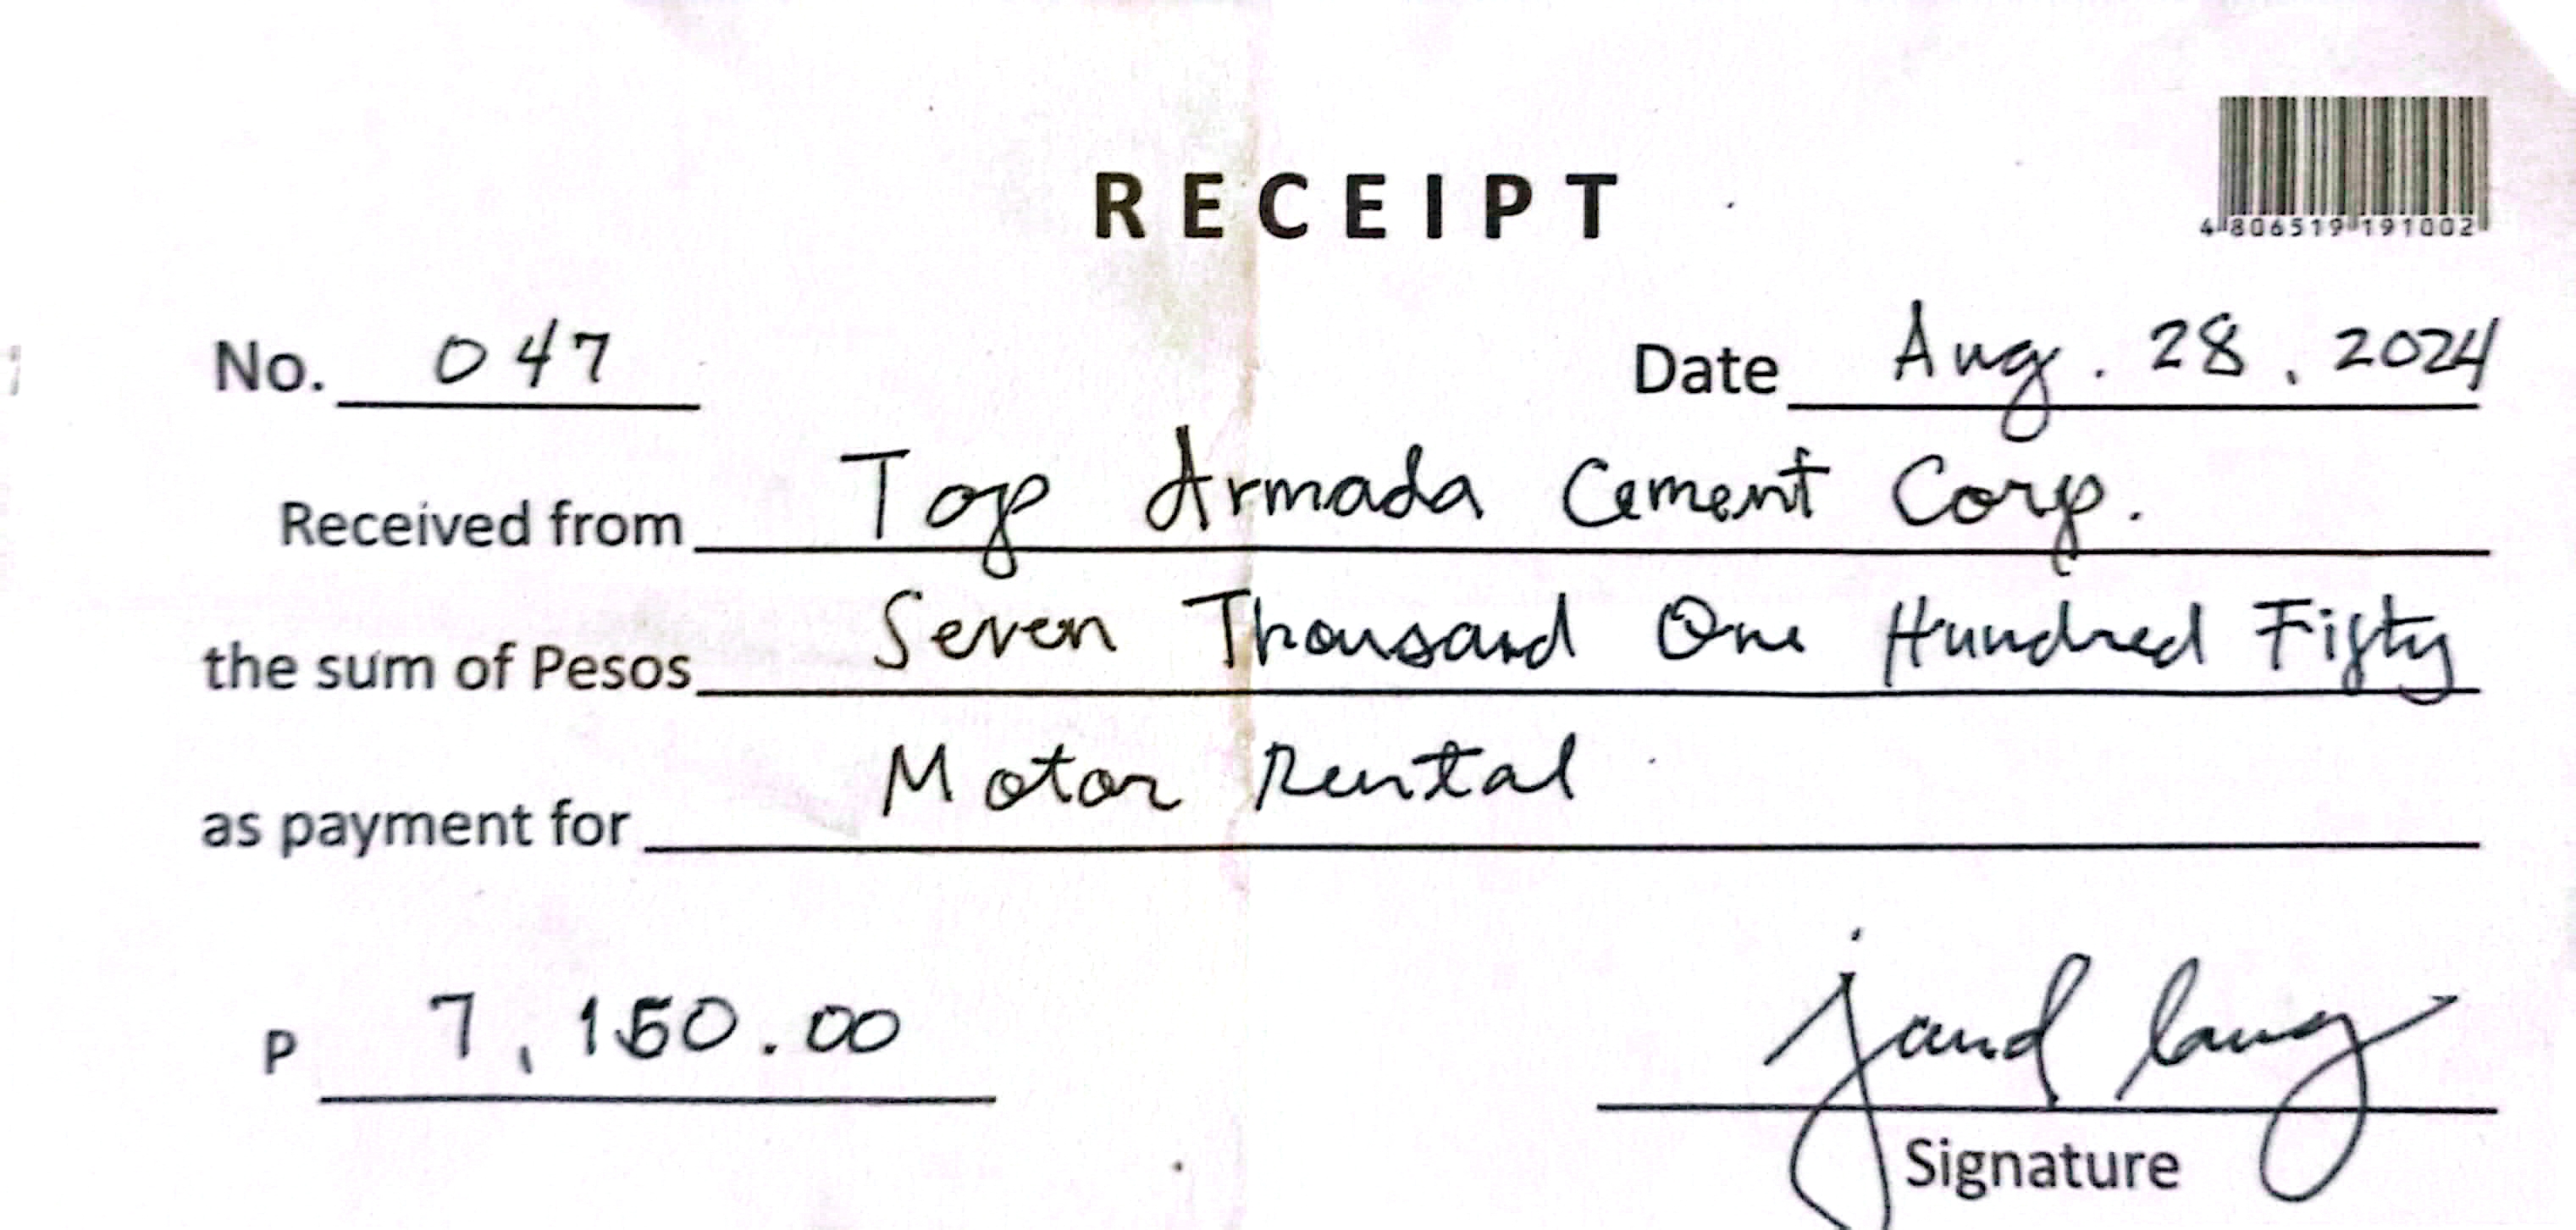 RECEIPT
4 806519 191002
No. 047 Date Aug. 28, 2024
Received from Top Armada Cement Corp.
the sum of Pesos Seven Thousand One Hundred Fifty
as payment for Motor Rental
P 7,150.00
Signature